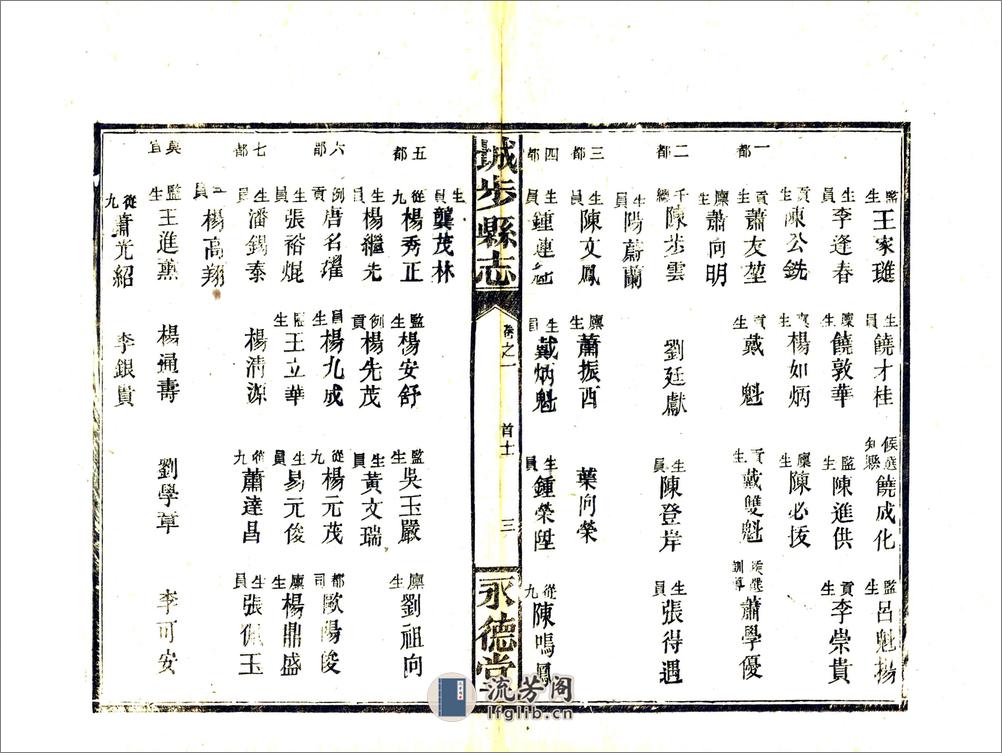 監生王家璡 生員饒才桂 候選知縣饒成化 監生呂魁揚
生員李逢春 廩生饒敦華 監生陳進供 貢生李崇貴
貢生陳公銑 楊如炳 廩生陳必拔
一都 貢生蕭友堃 貢生戴魁 貢生戴雙魁 候選訓導蕭學優
廩生蕭向明
二都 千總陳步雲 劉廷獻 生員陳登岸 生員張得遇
生員陽蔚蘭
三都 生員陳文鳳 廩生蕭振西 葉向榮
四都 生員鍾蓮 生員戴炳魁 生員鍾榮陞 從九陳鳴鳳
城步縣志 卷之一 首士 三 永德堂
生員龔茂林
五都 從九楊秀正 監生楊安舒 監生吳玉嚴 廩生劉祖向
生員楊繼光 例貢楊先茂 生員黃文瑞
六都 例貢唐名濯 生員楊九成 從九楊元茂 都司歐陽俊
生員張裕焜 監生王立華 生員易元俊 廩生楊鼎盛
七都 生員潘錫泰 楊清源 從九蕭達昌 生員張佩玉
生員楊高翔
吳宜 監生王進薰 楊通壽 劉學章 李可安
從九蕭光紹 李銀貴
流芳阁
lfglib.cn